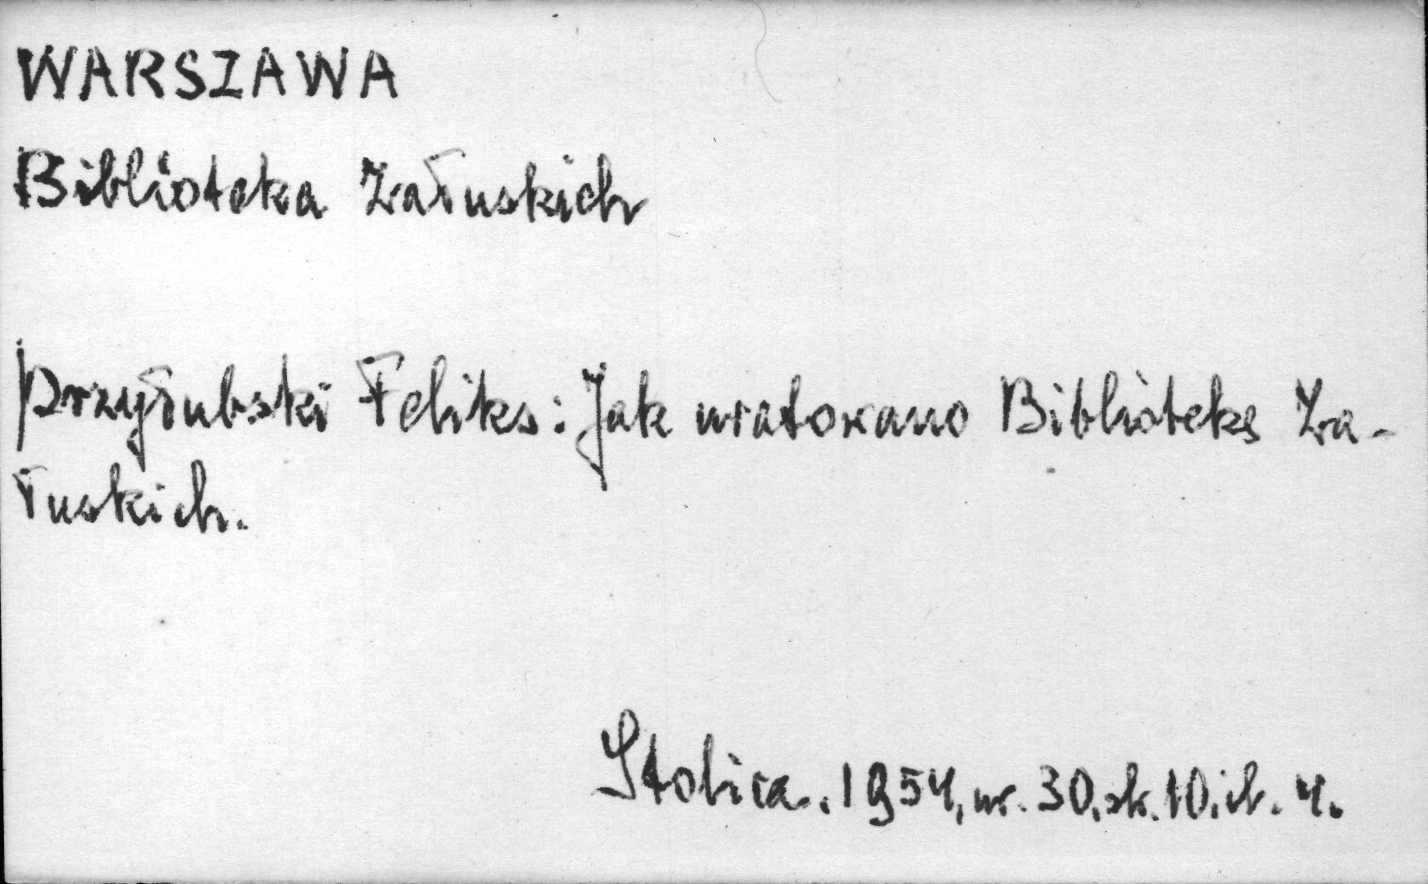 WARSZAWA
Biblioteka Załuskich
Przyłubski Feliks: Jak uratowano Bibliotekę Za-
łuskich.
Stolica. 1954, nr. 30, str. 10, il. 4.